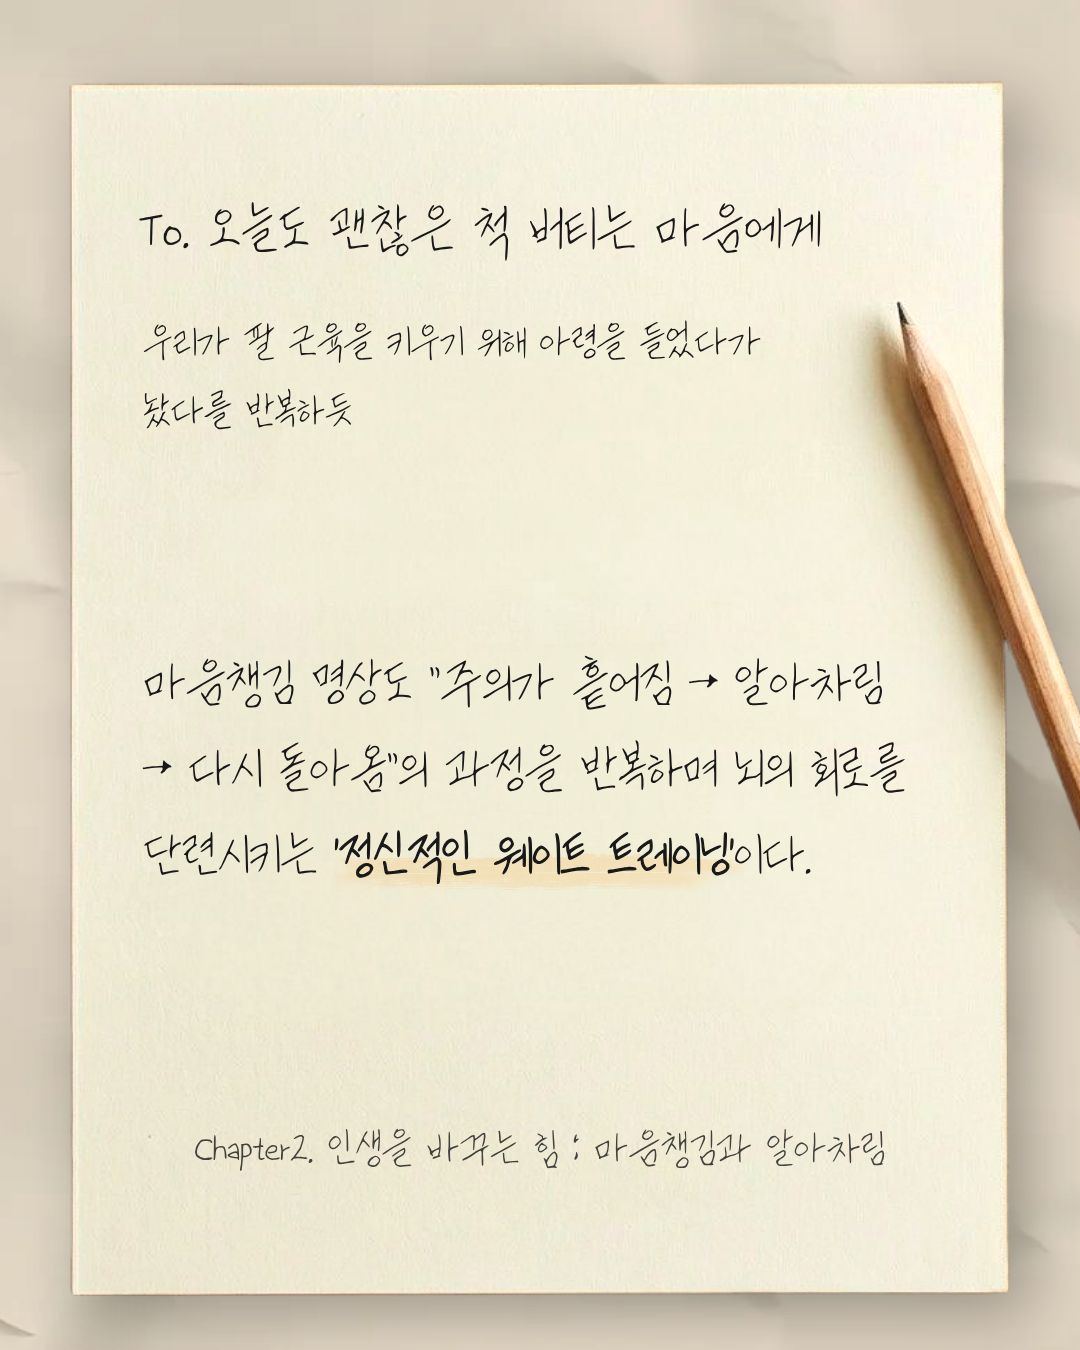 To. 오늘도 괜찮은 척 버티는 마음에게
우리가 팔 근육을 키우기 위해 아령을 들었다가
놨다를 반복하듯
마음챙김 명상도 "주의가 흩어짐 → 알아차림
→ 다시 돌아옴"의 과정을 반복하며 뇌의 회로를
단련시키는 '정신적인 웨이트 트레이닝'이다.
Chapter2. 인생을 바꾸는 힘 ; 마음챙김과 알아차림